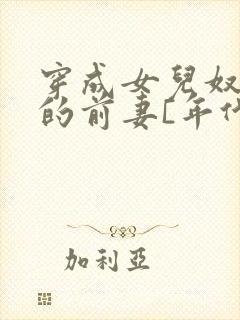 穿成女兒奴
的前妻[年代
加利亞